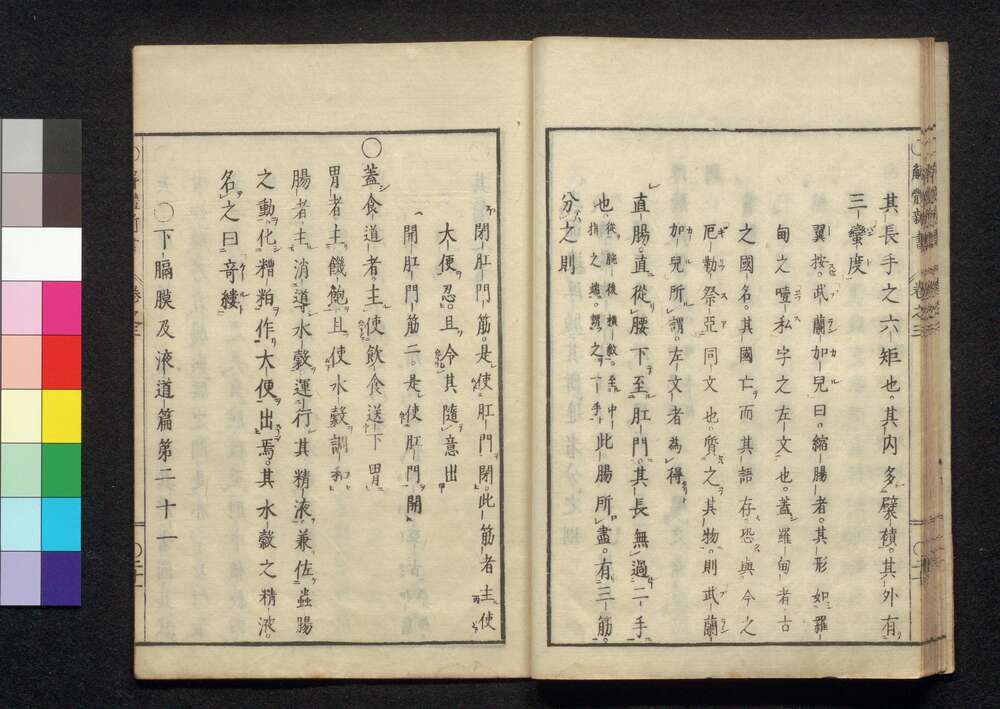 其長手之六矩也。其内多襞積。其外有
三蠻度
翼按。武蘭加兒曰。縮腸者。其形如羅
甸之噎私字之左文也。蓋羅甸者古
之國名。其國亡而其語存。恐與今之
厄勒祭亞同文也。質之其物。則武蘭
加兒所謂左文者為得
直腸。直從腰下至肛門。其長無過二手
也。從腕後横紋。至中
指之端。謂之一手。此腸所盡。有三筋。
分之則
閉肛門筋。是使肛門閉。此筋者主使
大便忍。且令其隨意出
開肛門筋二。是使肛門開
○蓋食道者。主使飲食送下胃
胃者主饑飽。且使水穀調和
腸者主消導水穀運行其精液。兼佐蟲腸
之動。化糟粕作大便出焉。其水穀之精液。
名之曰奇縷
○下膈膜及液道篇第二十一